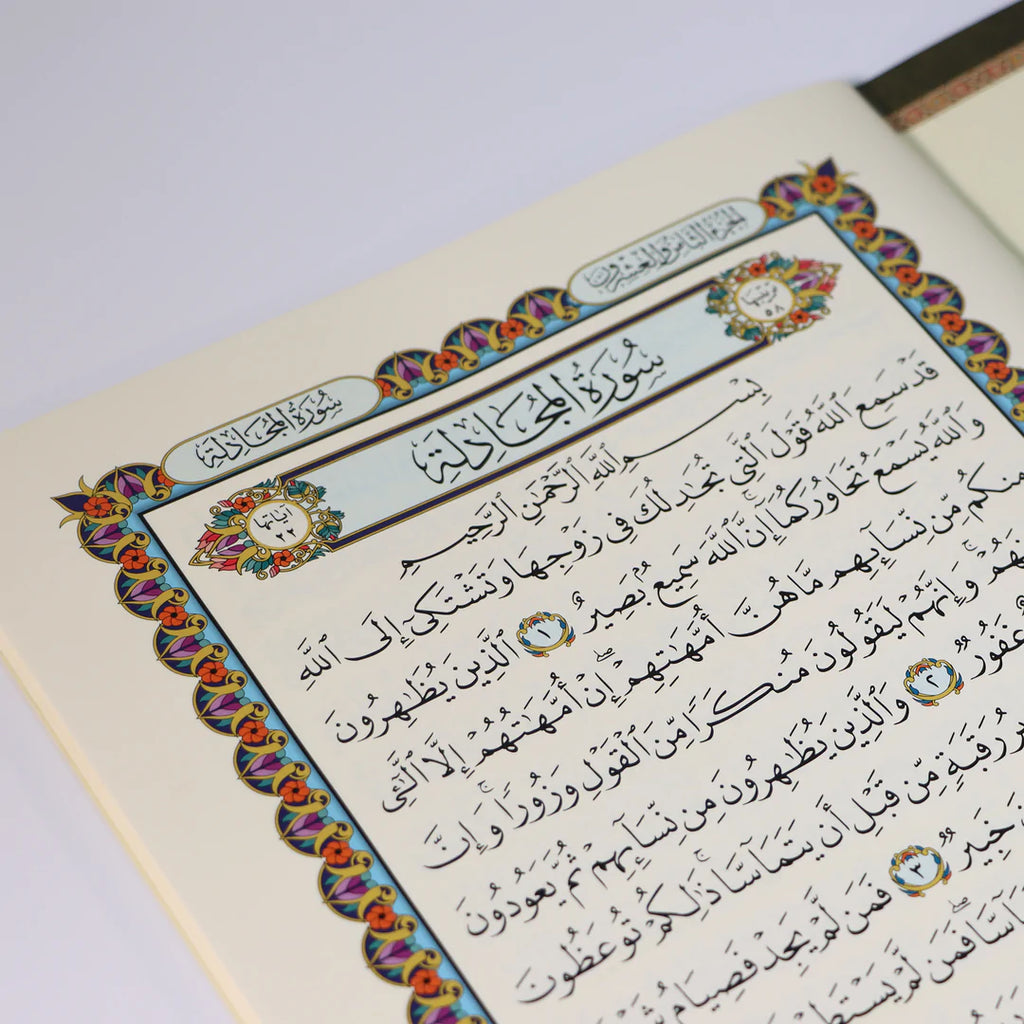 الجزء الثامن والعشرون
سُورَةُ المُجَادلَةِ
ترتيبها ٥٨
سُورَةُ المُجَادلَةِ
آياتها ٢٢
بِسْمِ ٱللَّهِ ٱلرَّحْمَٰنِ ٱلرَّحِيمِ
قَدْ سَمِعَ ٱللَّهُ قَوْلَ ٱلَّتِى تُجَٰدِلُكَ فِى زَوْجِهَا وَتَشْتَكِىٓ إِلَى ٱللَّهِ
وَٱللَّهُ يَسْمَعُ تَحَاوُرَكُمَآ ۚ إِنَّ ٱللَّهَ سَمِيعٌۢ بَصِيرٌ ١ ٱلَّذِينَ يُظَٰهِرُونَ
مِنكُم مِّن نِّسَآئِهِم مَّا هُنَّ أُمَّهَٰتِهِمْ ۖ إِنْ أُمَّهَٰتُهُمْ إِلَّا ٱلَّٰٓـِٔى
نَهُمْ ۚ وَإِنَّهُمْ لَيَقُولُونَ مُنكَرًا مِّنَ ٱلْقَوْلِ وَزُورًا ۚ وَإِنَّ
غَفُورٌ ٢ وَٱلَّذِينَ يُظَٰهِرُونَ مِن نِّسَآئِهِمْ ثُمَّ يَعُودُونَ
رَقَبَةٍ مِّن قَبْلِ أَن يَتَمَآسَّا ۚ ذَٰلِكُمْ تُوعَظُونَ
خَبِيرٌ ٣ فَمَن لَّمْ يَجِدْ فَصِيَامُ
فَمَن لَّمْ